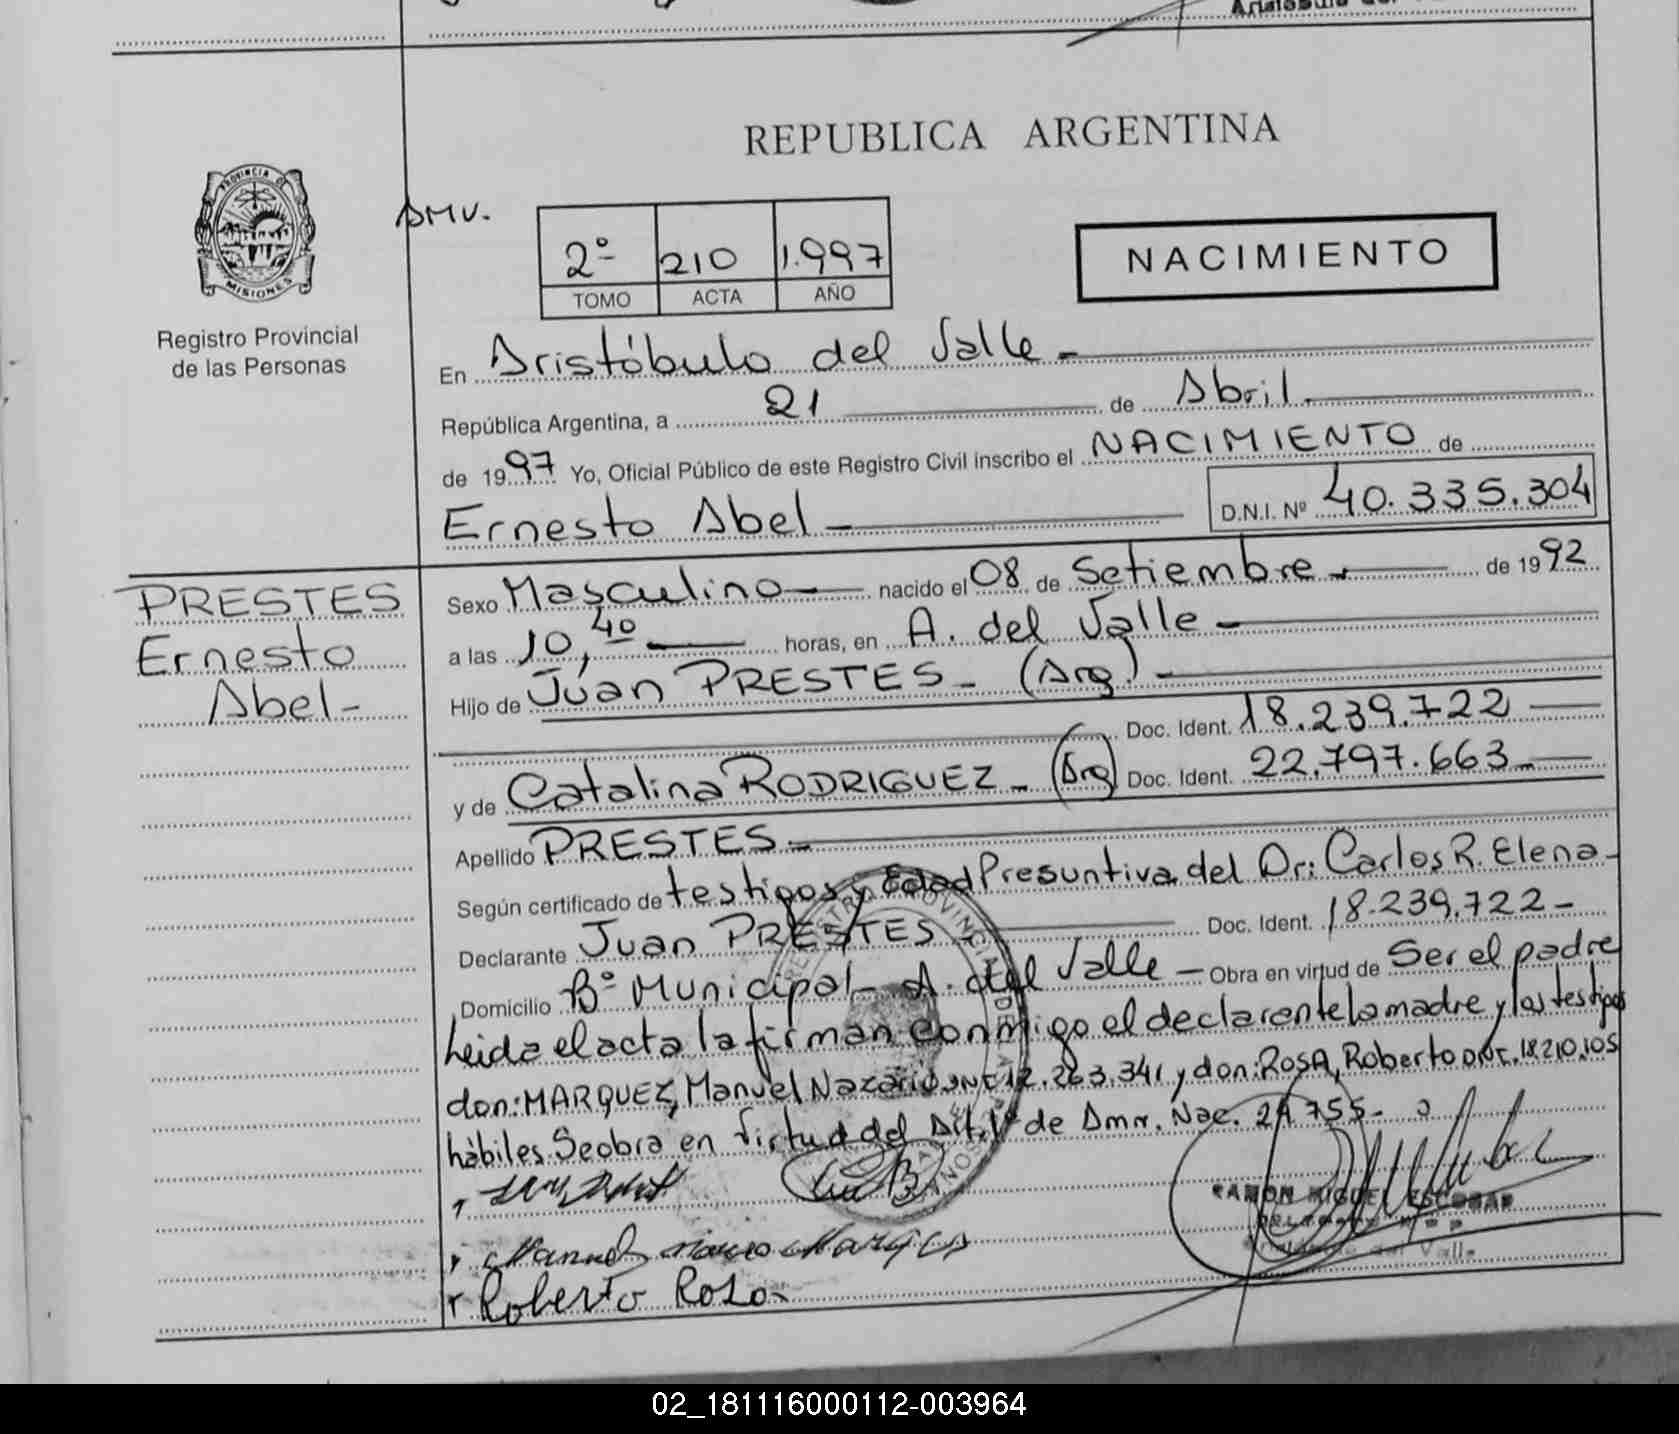 REPUBLICA ARGENTINA
PROVINCIA DE
MISIONES
Registro Provincial
de las Personas
AMV.
2º 210 1.997
TOMO ACTA AÑO
NACIMIENTO
En Aristóbulo del Valle
República Argentina, a 21 de Abril
de 1997 Yo, Oficial Público de este Registro Civil inscribo el NACIMIENTO de
Ernesto Abel D.N.I. Nº 40.335.304
PRESTES
Ernesto
Abel-
Sexo Masculino nacido el 08 de Setiembre de 1992
a las 10,40 horas, en A. del Valle
Hijo de Juan PRESTES - (Arg.)
Doc. Ident. 18.239.722
y de Catalina RODRIGUEZ - (Arg) Doc. Ident. 22.797.663
Apellido PRESTES
Según certificado de testigos y Edad Presuntiva del Dr: Carlos R. Elena
Declarante Juan PRESTES Doc. Ident. 18.239.722-
Domicilio Bº Municipal- A. del Valle - Obra en virtud de Ser el padre
Leida el acta la firman conmigo el declarante la madre y los testigos
don: MARQUEZ, Manuel Nazario DNI 12.263.341 y don: ROSA, Roberto DNI. 18.210.105
hábiles Se obra en Virtud del de Nac. 755-
Roberto Rosa
RAMON MIGUEL ESCOBAR
del Valle
02_181116000112-003964